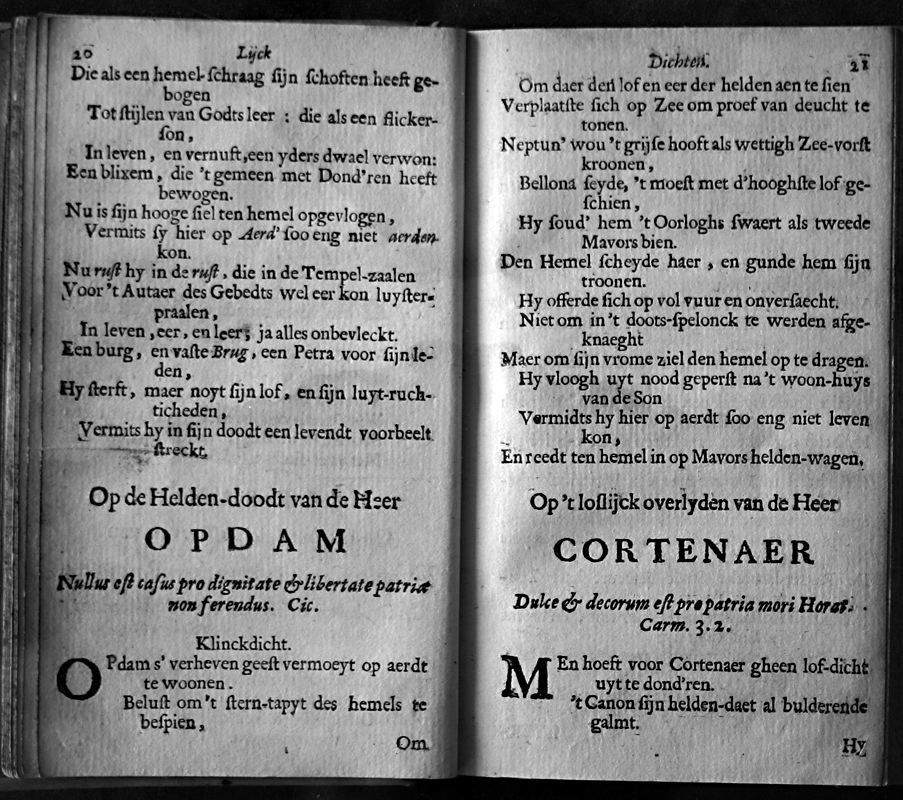 20 Lijck
Die als een hemel-schraag sijn schoften heeft ge-
bogen
Tot stijlen van Godts leer : die als een flicker-
son,
In leven, en vernuft, een yders dwael verwon:
Een blixem, die 't gemeen met Dond'ren heeft
bewogen.
Nu is sijn hooge siel ten hemel opgevlogen,
Vermits sy hier op Aerd' soo eng niet aerden
kon.
Nu rust hy in de rust, die in de Tempel-zaalen
Voor 't Autaer des Gebedts wel eer kon luyster-
praalen,
In leven, eer, en leer; ja alles onbevleckt.
Een burg, en vaste Brug, een Petra voor sijn le-
den,
Hy sterft, maer noyt sijn lof, en sijn luyt-ruch-
ticheden,
Vermits hy in sijn doodt een levendt voorbeelt
streckt.
Op de Helden-doodt van de Heer
OPDAM
Nullus est casus pro dignitate & libertate patriæ
non ferendus. Cic.
Klinckdicht.
OPdam s' verheven geest vermoeyt op aerdt
te woonen.
Belust om 't stern-tapyt des hemels te
bespien,
Om
Dichten. 21
Om daer den lof en eer der helden aen te sien
Verplaatste sich op Zee om proef van deucht te
tonen.
Neptun' wou 't grijse hooft als wettigh Zee-vorst
kroonen,
Bellona seyde, 't moest met d'hooghste lof ge-
schien,
Hy soud' hem 't Oorloghs swaert als tweede
Mavors bien.
Den Hemel scheyde haer, en gunde hem sijn
troonen.
Hy offerde sich op vol vuur en onversaecht.
Niet om in 't doots-spelonck te werden afge-
knaeght
Maer om sijn vrome ziel den hemel op te dragen.
Hy vloogh uyt nood geperst na 't woon-huys
van de Son
Vermidts hy hier op aerdt soo eng niet leven
kon,
En reedt ten hemel in op Mavors helden-wagen,
Op 't loflijck overlyden van de Heer
CORTENAER
Dulce & decorum est pro patria mori Horat.
Carm. 3. 2.
MEn hoeft voor Cortenaer gheen lof-dicht
uyt te dond'ren.
't Canon sijn helden-daet al bulderende
galmt.
Hy